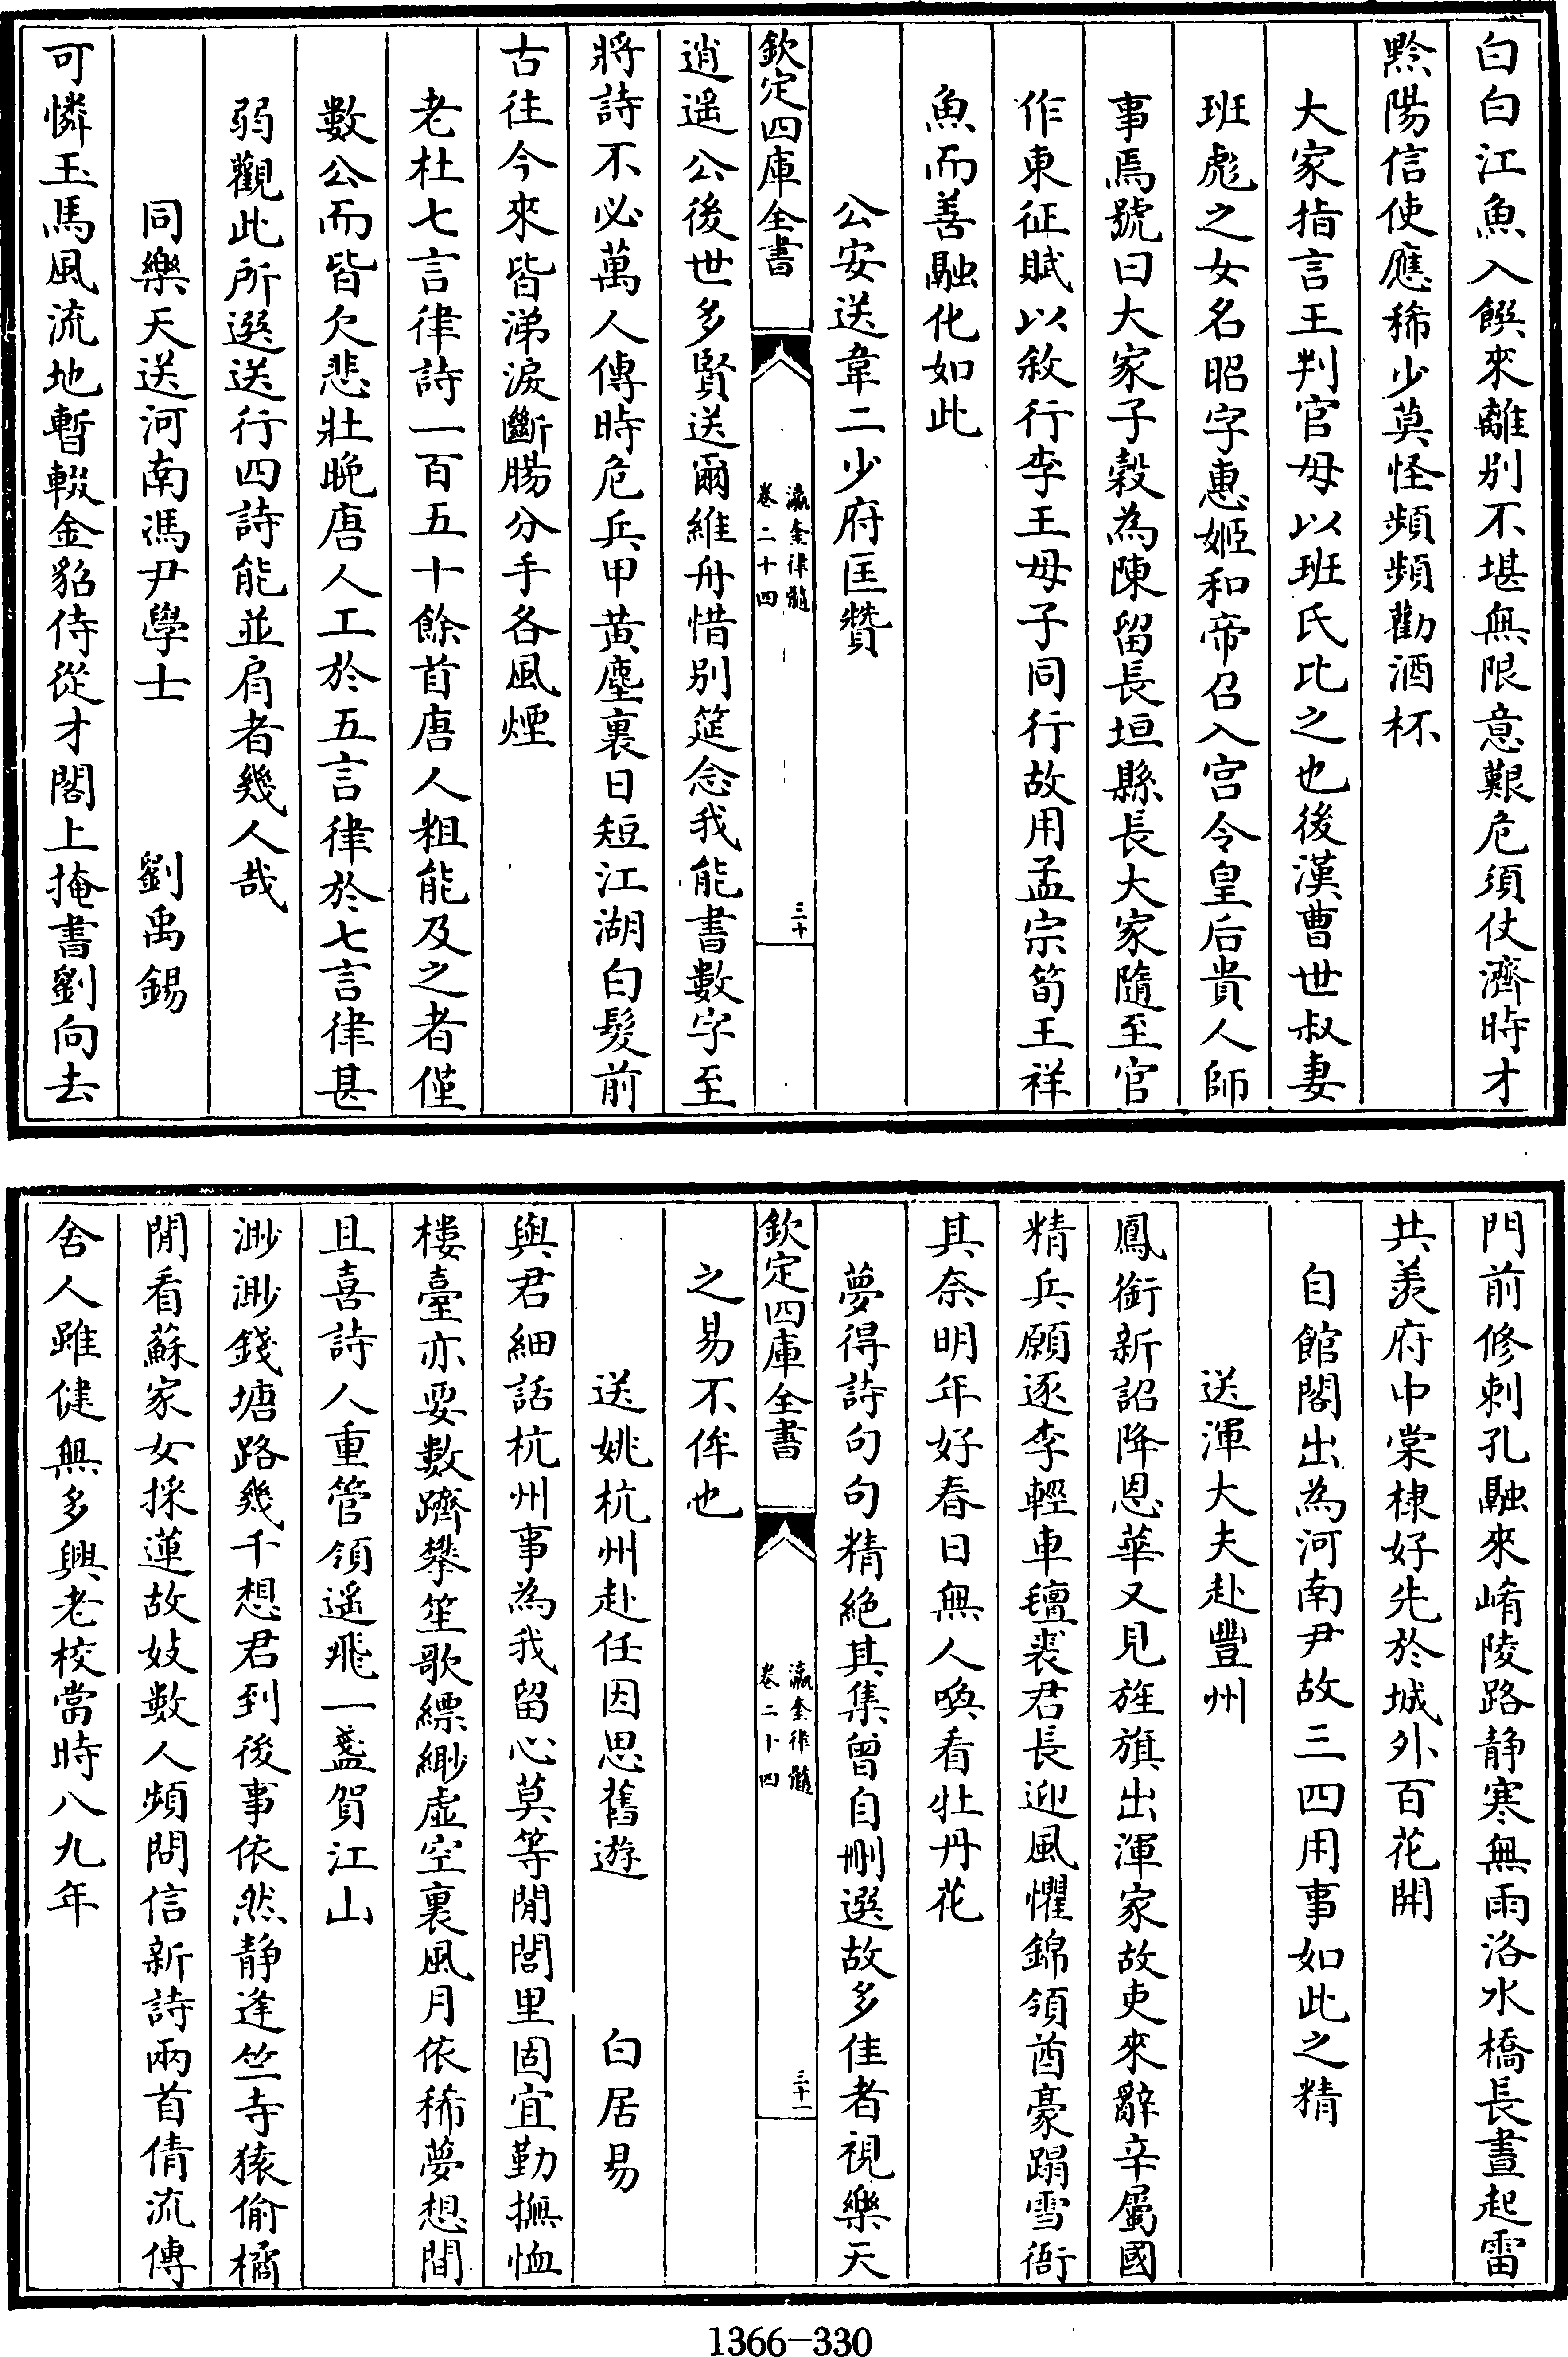 白白江魚入饌來離别不堪無限意艱危須仗濟時才
黔陽信使應稀少莫怪頻頻勸酒杯
大家指言王判官母以班氏比之也後漢曹世叔妻
班彪之女名昭字惠姬和帝召入宫令皇后貴人師
事焉號曰大家子穀為陳留長垣縣長大家隨至官
作東征賦以敘行李王母子同行故用孟宗筍王祥
魚而善融化如此
公安送韋二少府匡贊
欽定四庫全書
瀛奎律髓
卷二十四
三十
逍遥公後世多賢送爾維舟惜别筵念我能書數字至
將詩不必萬人傳時危兵甲黄塵裏日短江湖白髮前
古往今來皆涕淚斷腸分手各風煙
老杜七言律詩一百五十餘首唐人粗能及之者僅
數公而皆欠悲壯晚唐人工於五言律於七言律甚
弱觀此所選送行四詩能並肩者幾人哉
同樂天送河南馮尹學士 劉禹錫
可憐玉馬風流地暫輟金貂侍從才閣上掩書劉向去
門前修刺孔融來崤陵路静寒無雨洛水橋長晝起雷
共羡府中棠棣好先於城外百花開
自館閣出為河南尹故三四用事如此之精
送渾大夫赴豐州
鳳銜新詔降恩華又見旌旗出渾家故吏來辭辛屬國
精兵願逐李輕車氊裘君長迎風懼錦領酋豪蹋雪衙
其奈明年好春日無人喚看牡丹花
夢得詩句句精絶其集曾自刪選故多佳者視樂天
欽定四庫全書
瀛奎律髓
卷二十四
三十一
之易不侔也
送姚杭州赴任因思舊遊 白居易
與君細話杭州事為我留心莫等閒閭里固宜勤撫恤
樓臺亦要數躋攀笙歌縹緲虛空裏風月依稀夢想間
且喜詩人重管領遥飛一盞賀江山
渺渺錢塘路幾千想君到後事依然静逢竺寺猿偷橘
閒看蘇家女採蓮故妓數人頻問信新詩兩首倩流傳
舍人雖健無多興老校當時八九年
1366-330